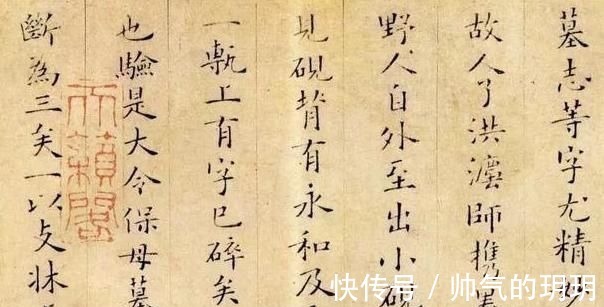 墓志等字尤精
故人了洪灋師携
野人自外至出小硯
見硯背有永和及
一甎上有字已碎矣
也驗是大令保母墓
斷為三矣一以支牀
天籟閣
快传号 / 帅气的玥玥